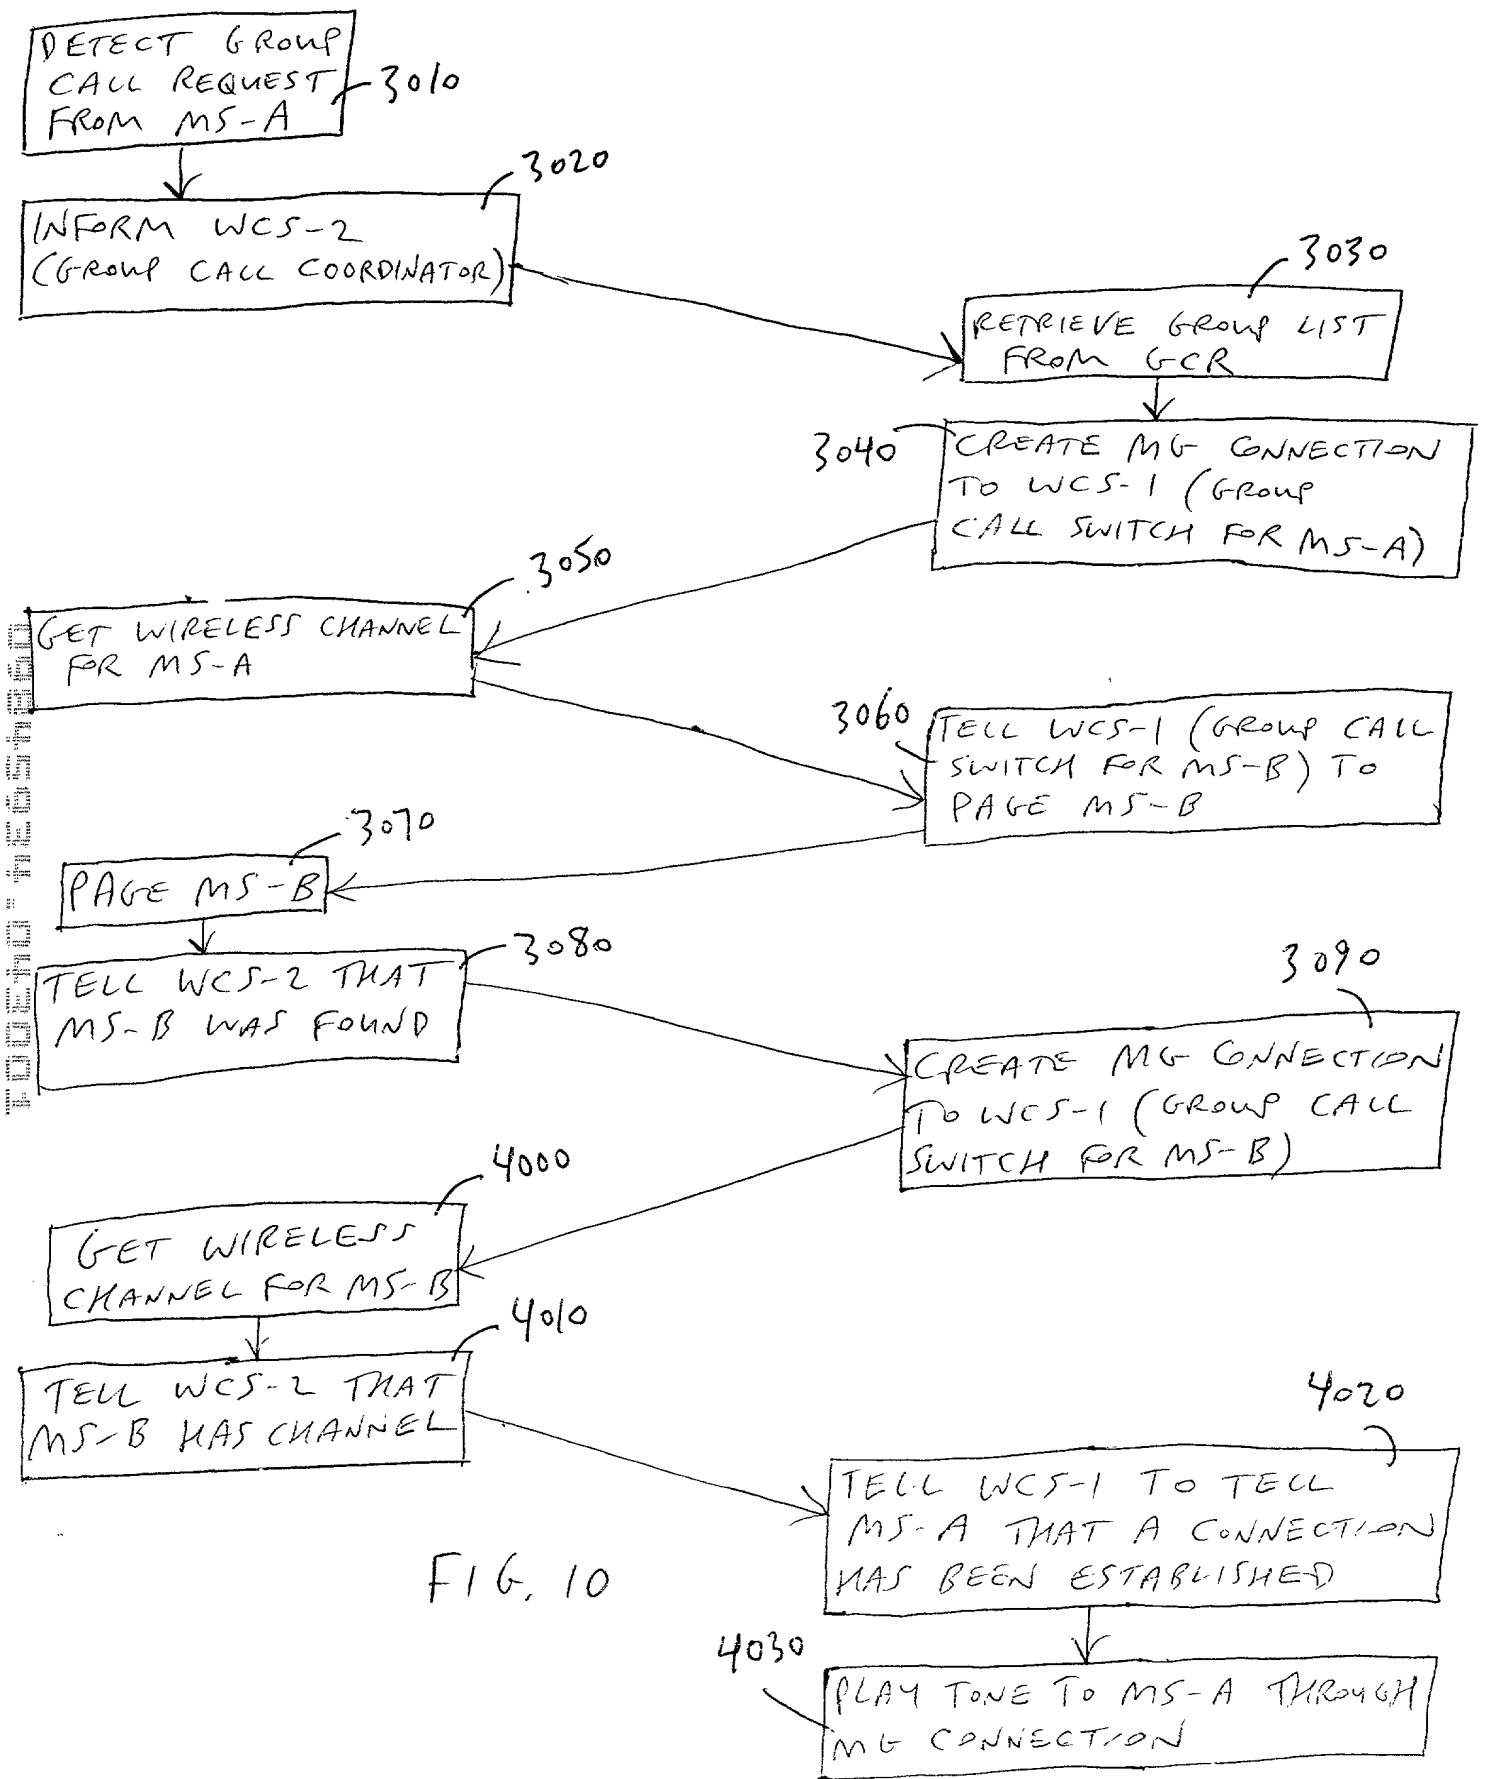 DETECT GROUP
CALL REQUEST
FROM MS-A
3010
3020
INFORM WCS-2
(GROUP CALL COORDINATOR)
3030
RETRIEVE GROUP LIST
FROM GCR
3040
CREATE MG CONNECTION
TO WCS-1 (GROUP
CALL SWITCH FOR MS-A)
3050
GET WIRELESS CHANNEL
FOR MS-A
3060
TELL WCS-1 (GROUP CALL
SWITCH FOR MS-B) TO
PAGE MS-B
3070
PAGE MS-B
3080
TELL WCS-2 THAT
MS-B WAS FOUND
3090
CREATE MG CONNECTION
TO WCS-1 (GROUP CALL
SWITCH FOR MS-B)
4000
GET WIRELESS
CHANNEL FOR MS-B
4010
TELL WCS-2 THAT
MS-B HAS CHANNEL
4020
TELL WCS-1 TO TELL
MS-A THAT A CONNECTION
HAS BEEN ESTABLISHED
FIG. 10
4030
PLAY TONE TO MS-A THROUGH
MG CONNECTION